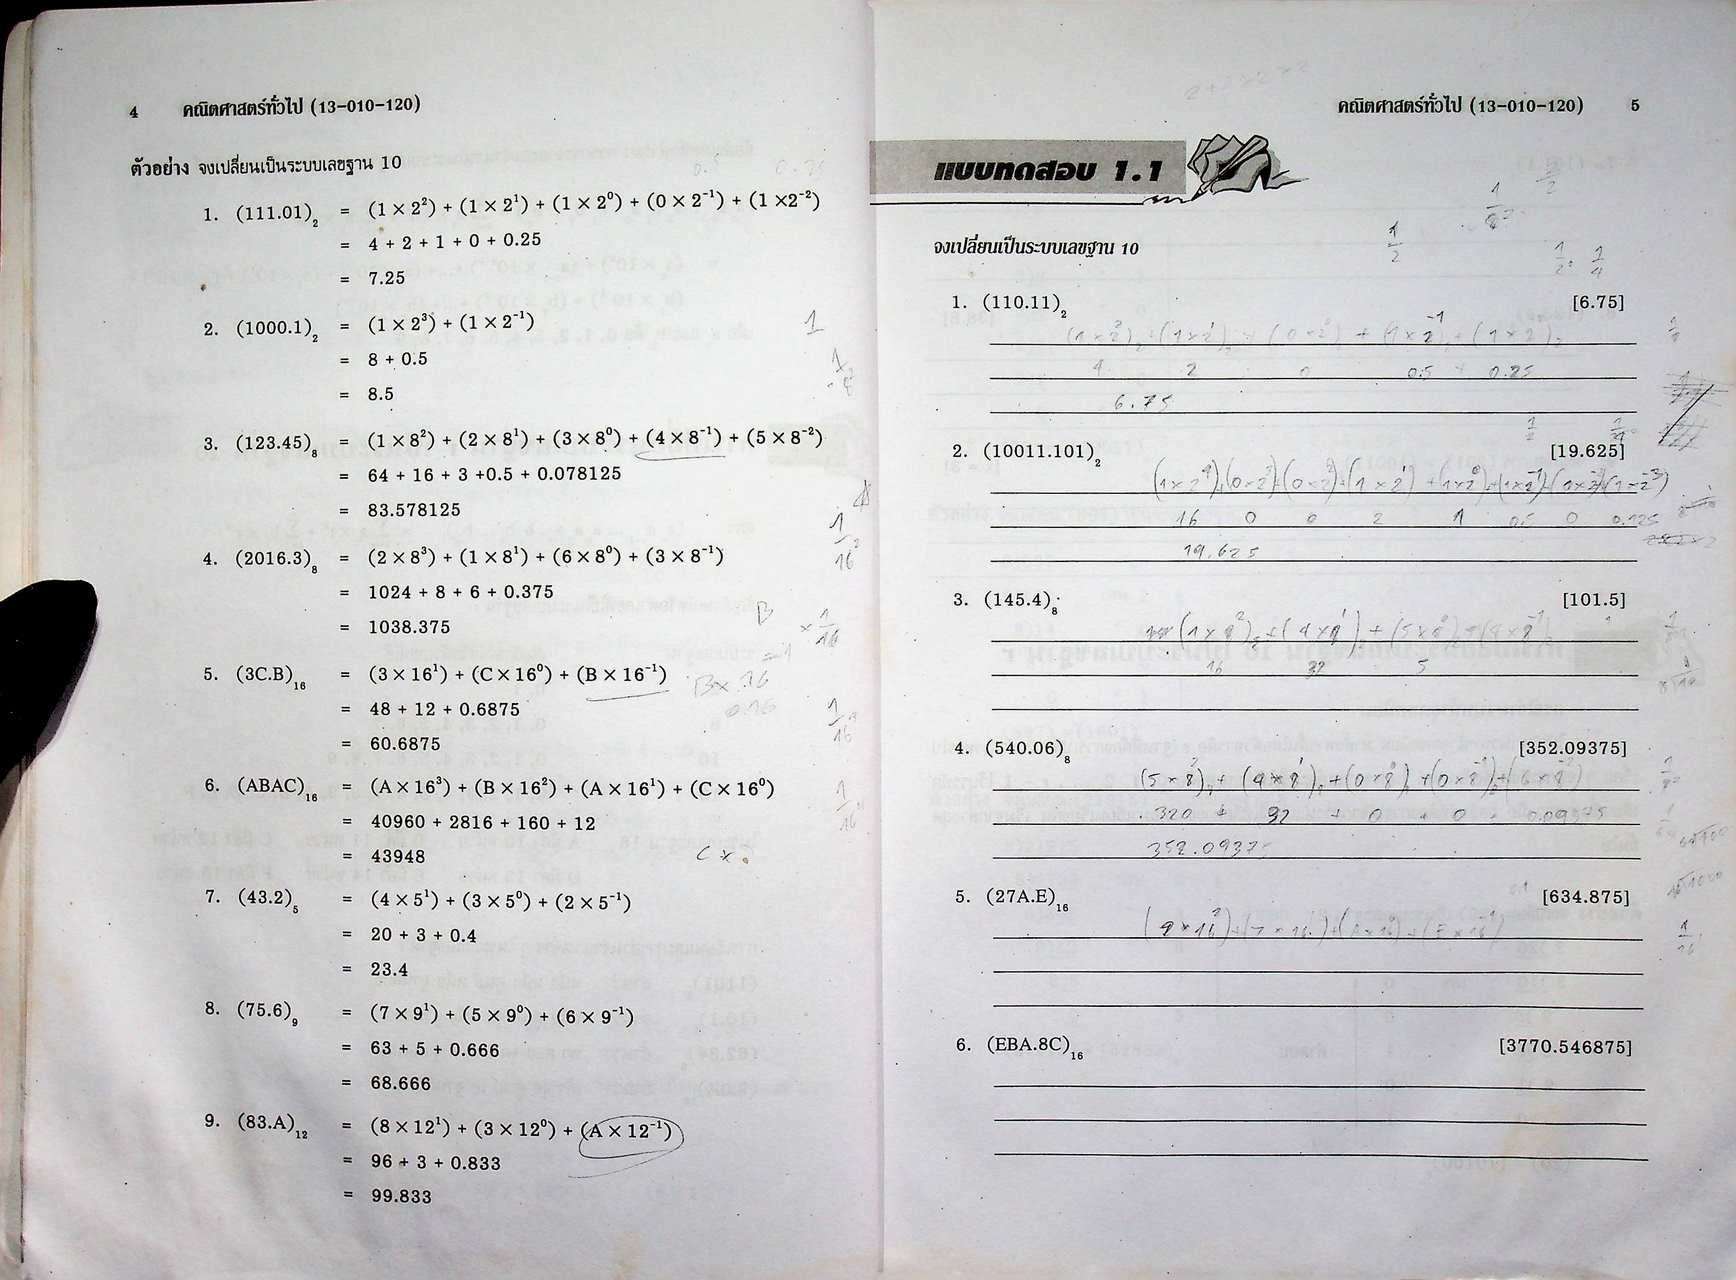 4 คณิตศาสตร์ทั่วไป (13-010-120)
ตัวอย่าง จงเปลี่ยนเป็นระบบเลขฐาน 10
1. (111.01)₂ = (1 × 2²) + (1 × 2¹) + (1 × 2⁰) + (0 × 2⁻¹) + (1 ×2⁻²)
= 4 + 2 + 1 + 0 + 0.25
= 7.25
2. (1000.1)₂ = (1 × 2³) + (1 × 2⁻¹)
= 8 + 0.5
= 8.5
3. (123.45)₈ = (1 × 8²) + (2 × 8¹) + (3 × 8⁰) + (4 × 8⁻¹) + (5 × 8⁻²)
= 64 + 16 + 3 +0.5 + 0.078125
= 83.578125
4. (2016.3)₈ = (2 × 8³) + (1 × 8¹) + (6 × 8⁰) + (3 × 8⁻¹)
= 1024 + 8 + 6 + 0.375
= 1038.375
5. (3C.B)₁₆ = (3 × 16¹) + (C × 16⁰) + (B × 16⁻¹)
= 48 + 12 + 0.6875
= 60.6875
6. (ABAC)₁₆ = (A × 16³) + (B × 16²) + (A × 16¹) + (C × 16⁰)
= 40960 + 2816 + 160 + 12
= 43948
7. (43.2)₅ = (4 × 5¹) + (3 × 5⁰) + (2 × 5⁻¹)
= 20 + 3 + 0.4
= 23.4
8. (75.6)₉ = (7 × 9¹) + (5 × 9⁰) + (6 × 9⁻¹)
= 63 + 5 + 0.666
= 68.666
9. (83.A)₁₂ = (8 × 12¹) + (3 × 12⁰) + (A × 12⁻¹)
= 96 + 3 + 0.833
= 99.833
คณิตศาสตร์ทั่วไป (13-010-120) 5
แบบทดสอบ 1.1
จงเปลี่ยนเป็นระบบเลขฐาน 10
1. (110.11)₂ [6.75]
4 2 0 0.5 + 0.25
6.75
2. (10011.101)₂ [19.625]
16 0 0 2 1 0.5 0 0.125
19.625
3. (145.4)₈ [101.5]
16 32 5
4. (540.06)₈ [352.09375]
320 + 32 + 0 + 0 + 0.09375
352.09375
5. (27A.E)₁₆ [634.875]
6. (EBA.8C)₁₆ [3770.546875]